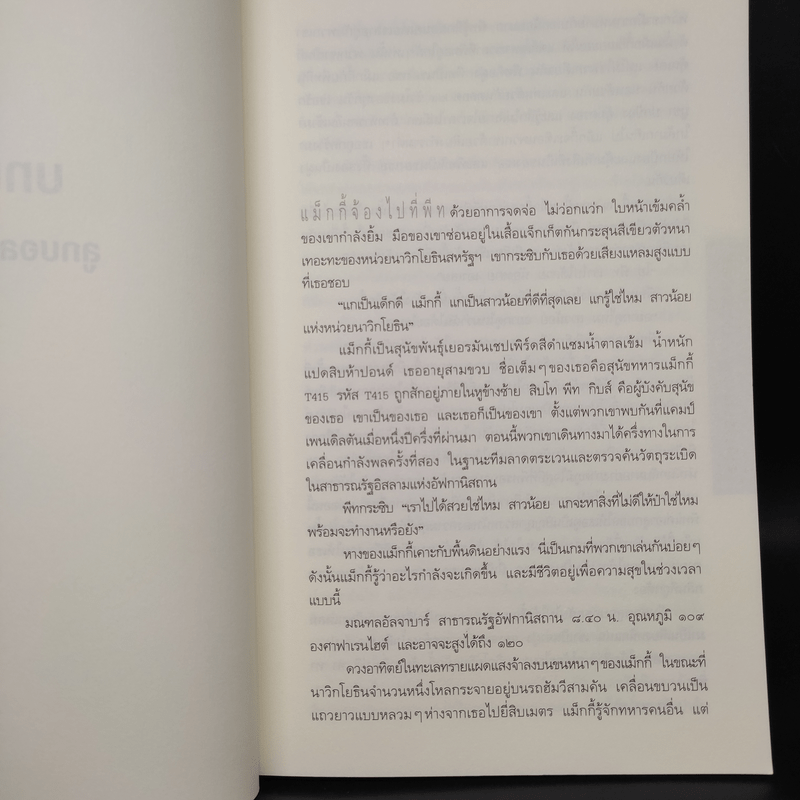 แม็กกี้จ้องไปที่พีทด้วยอาการจดจ่อ ไม่ว่อกแว่ก ใบหน้าเข้มคล้ำ
ของเขากำลังยิ้ม มือของเขาซ่อนอยู่ในเสื้อแจ็กเก็ตกันกระสุนสีเขียวตัวหนา
เทอะทะของหน่วยนาวิกโยธินสหรัฐฯ เขากระซิบกับเธอด้วยเสียงแหลมสูงแบบ
ที่เธอชอบ
“แกเป็นเด็กดี แม็กกี้ แกเป็นสาวน้อยที่ดีที่สุดเลย แกรู้ใช่ไหม สาวน้อย
แห่งหน่วยนาวิกโยธิน”
แม็กกี้เป็นสุนัขพันธุ์เยอรมันเชปเพิร์ดสีดำแซมน้ำตาลเข้ม น้ำหนัก
แปดสิบห้าปอนด์ เธออายุสามขวบ ชื่อเต็มๆ ของเธอคือสุนัขทหารแม็กกี้
T415 รหัส T415 ถูกสักอยู่ภายในหูข้างซ้าย สิบโท พีท กิบส์ คือผู้บังคับสุนัข
ของเธอ เขาเป็นของเธอ และเธอก็เป็นของเขา ตั้งแต่พวกเขาพบกันที่แคมป์
เพนเดิลตันเมื่อหนึ่งปีครึ่งที่ผ่านมา ตอนนี้พวกเขาเดินทางมาได้ครึ่งทางในการ
เคลื่อนกำลังพลครั้งที่สอง ในฐานะทีมลาดตระเวนและตรวจค้นวัตถุระเบิด
ในสาธารณรัฐอิสลามแห่งอัฟกานิสถาน
พีทกระซิบ “เราไปได้สวยใช่ไหม สาวน้อย แกจะหาสิ่งที่ไม่ดีให้ป๋าใช่ไหม
พร้อมจะทำงานหรือยัง”
หางของแม็กกี้เคาะกับพื้นดินอย่างแรง นี่เป็นเกมที่พวกเขาเล่นกันบ่อยๆ
ดังนั้นแม็กกี้รู้ว่าอะไรกำลังจะเกิดขึ้น และมีชีวิตอยู่เพื่อความสุขในช่วงเวลา
แบบนี้
มณฑลอัลจาบาร์ สาธารณรัฐอัฟกานิสถาน ๘.๔๐ น. อุณหภูมิ ๑๐๙
องศาฟาเรนไฮต์ และอาจจะสูงได้ถึง ๑๒๐
ดวงอาทิตย์ในทะเลทรายแผดแสงจ้าลงบนขนหนาๆ ของแม็กกี้ ในขณะที่
นาวิกโยธินจำนวนหนึ่งโหลกระจายอยู่บนรถฮัมวีสามคัน เคลื่อนขบวนเป็น
แถวยาวแบบหลวมๆ ห่างจากเธอไปยี่สิบเมตร แม็กกี้รู้จักทหารคนอื่น แต่